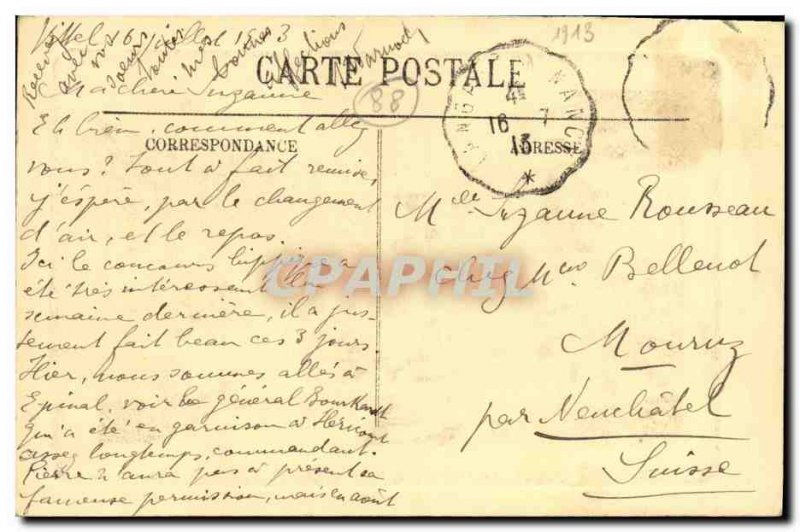 Vittel 16 juillet 1913
Ma chère Suzanne
Eh bien, comment allez
vous? Tout à fait remise,
j'espère, par le changement
d'air, et le repos.
Ici le concours hippique a
été très intéressant la
semaine dernière, il a jus-
tement fait beau ces 3 jours.
Hier, nous sommes allés à
Epinal, voir le général Bourkardt
qui a été en garnison à Héricourt
assez longtemps, commandant.
Pierre n'aura pas à présent sa
fameuse permission, mais en août
Recevez
avec vos
soeurs
toutes
mes
bonnes
affections
1913
CARTE POSTALE
88
CORRESPONDANCE
ADRESSE
NANCY
4E
16 7
13
*
Mlle Suzanne Rousseau
chez Mme Bellenot
Monruz
par Neuchâtel
Suisse
CPAPHIL